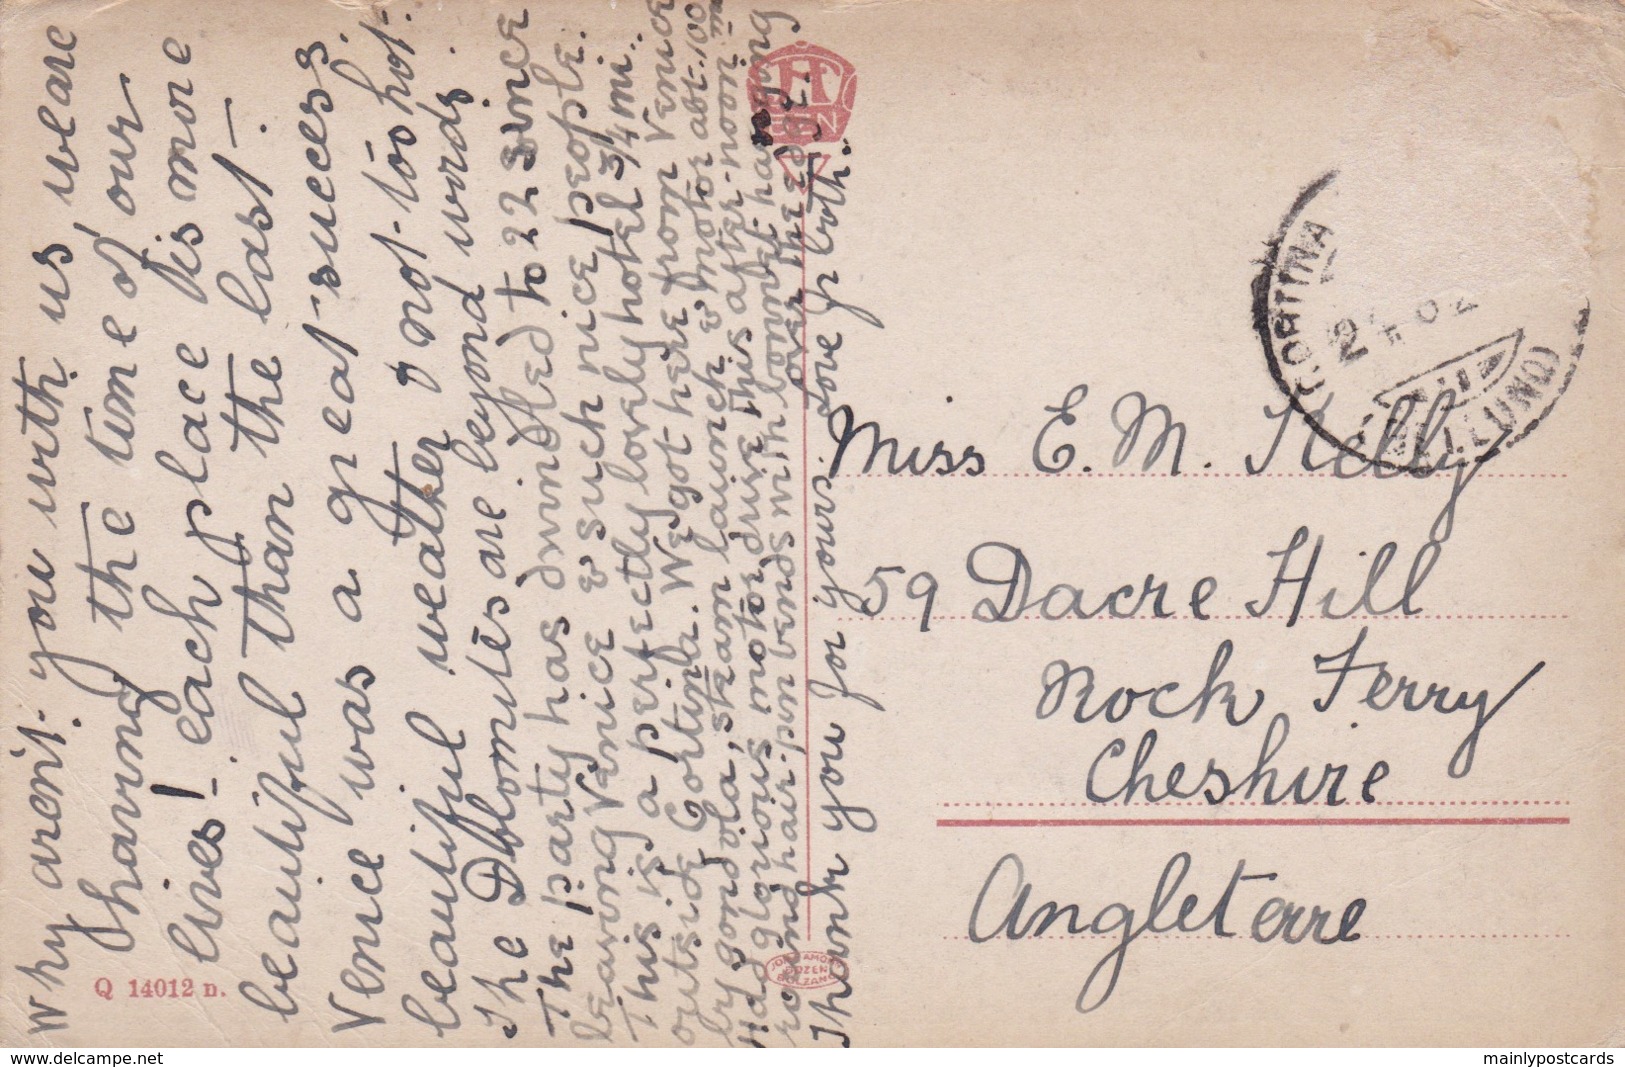 Why aren't you with us, we are
having the time of our
lives! each place is more
beautiful than the last.
Venice was a great success.
beautiful weather & not too hot.
The Dolomites are beyond words.
The party has dwindled to 22 since
leaving Venice & such nice people.
This is a perfectly lovely hotel 3/4 mi..
outside Cortina. We got here from Venice
by gondola, steam launch & motor abt. 100 m
Had glorious motor drive this after-noon
round hair-pin bends with bonnet hanging
over the edge!.
Thank you for yours. Love fr both.
Miss E. M. Kelly
59 Dacre Hill
Rock Ferry
Cheshire
Angleterre
CORTINA
(BELLUNO)
Q 14012 n.
BOZEN
BOLZANO
www.delcampe.net
mainlypostcards